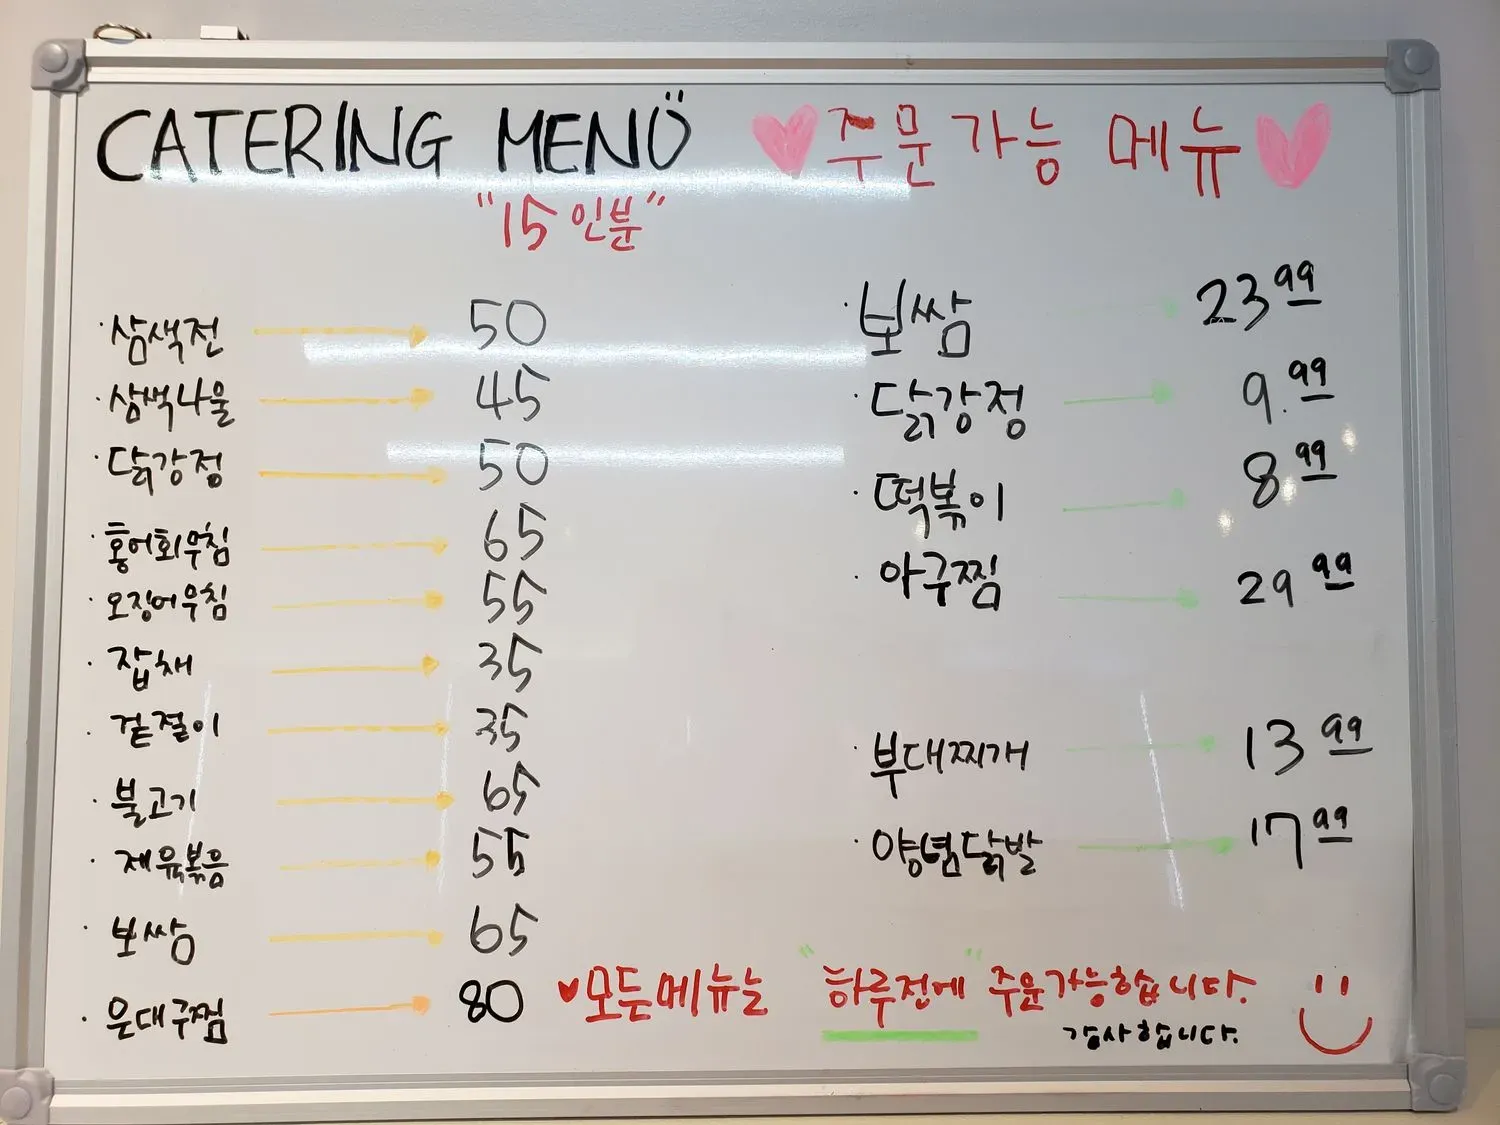 CATERING MENU
"15인분"
·삼색전 50
·삼색나물 45
·닭강정 50
·홍어회무침 65
·오징어무침 55
·잡채 35
·겉절이 35
·불고기 65
·제육볶음 55
·보쌈 65
·은대구찜 80
주문가능 메뉴
·보쌈 23.99
·닭강정 9.99
·떡볶이 8.99
·아구찜 29.99
·부대찌개 13.99
·양념닭발 17.99
모든메뉴는 "하루전에" 주문가능합니다.
감사합니다.